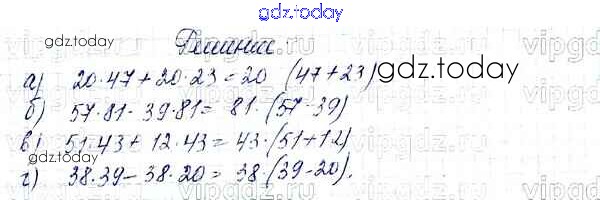 gdz.today
gdz.today
Решение
vipgdz
а) 20·47+20·23=20 (47+23)
gdz.today
б) 57·81-39·81= 81·(57-39)
в) 51·43+12·43=43·(51+12)
gdz.today
г) 38·39-38·20= 38·(39-20).